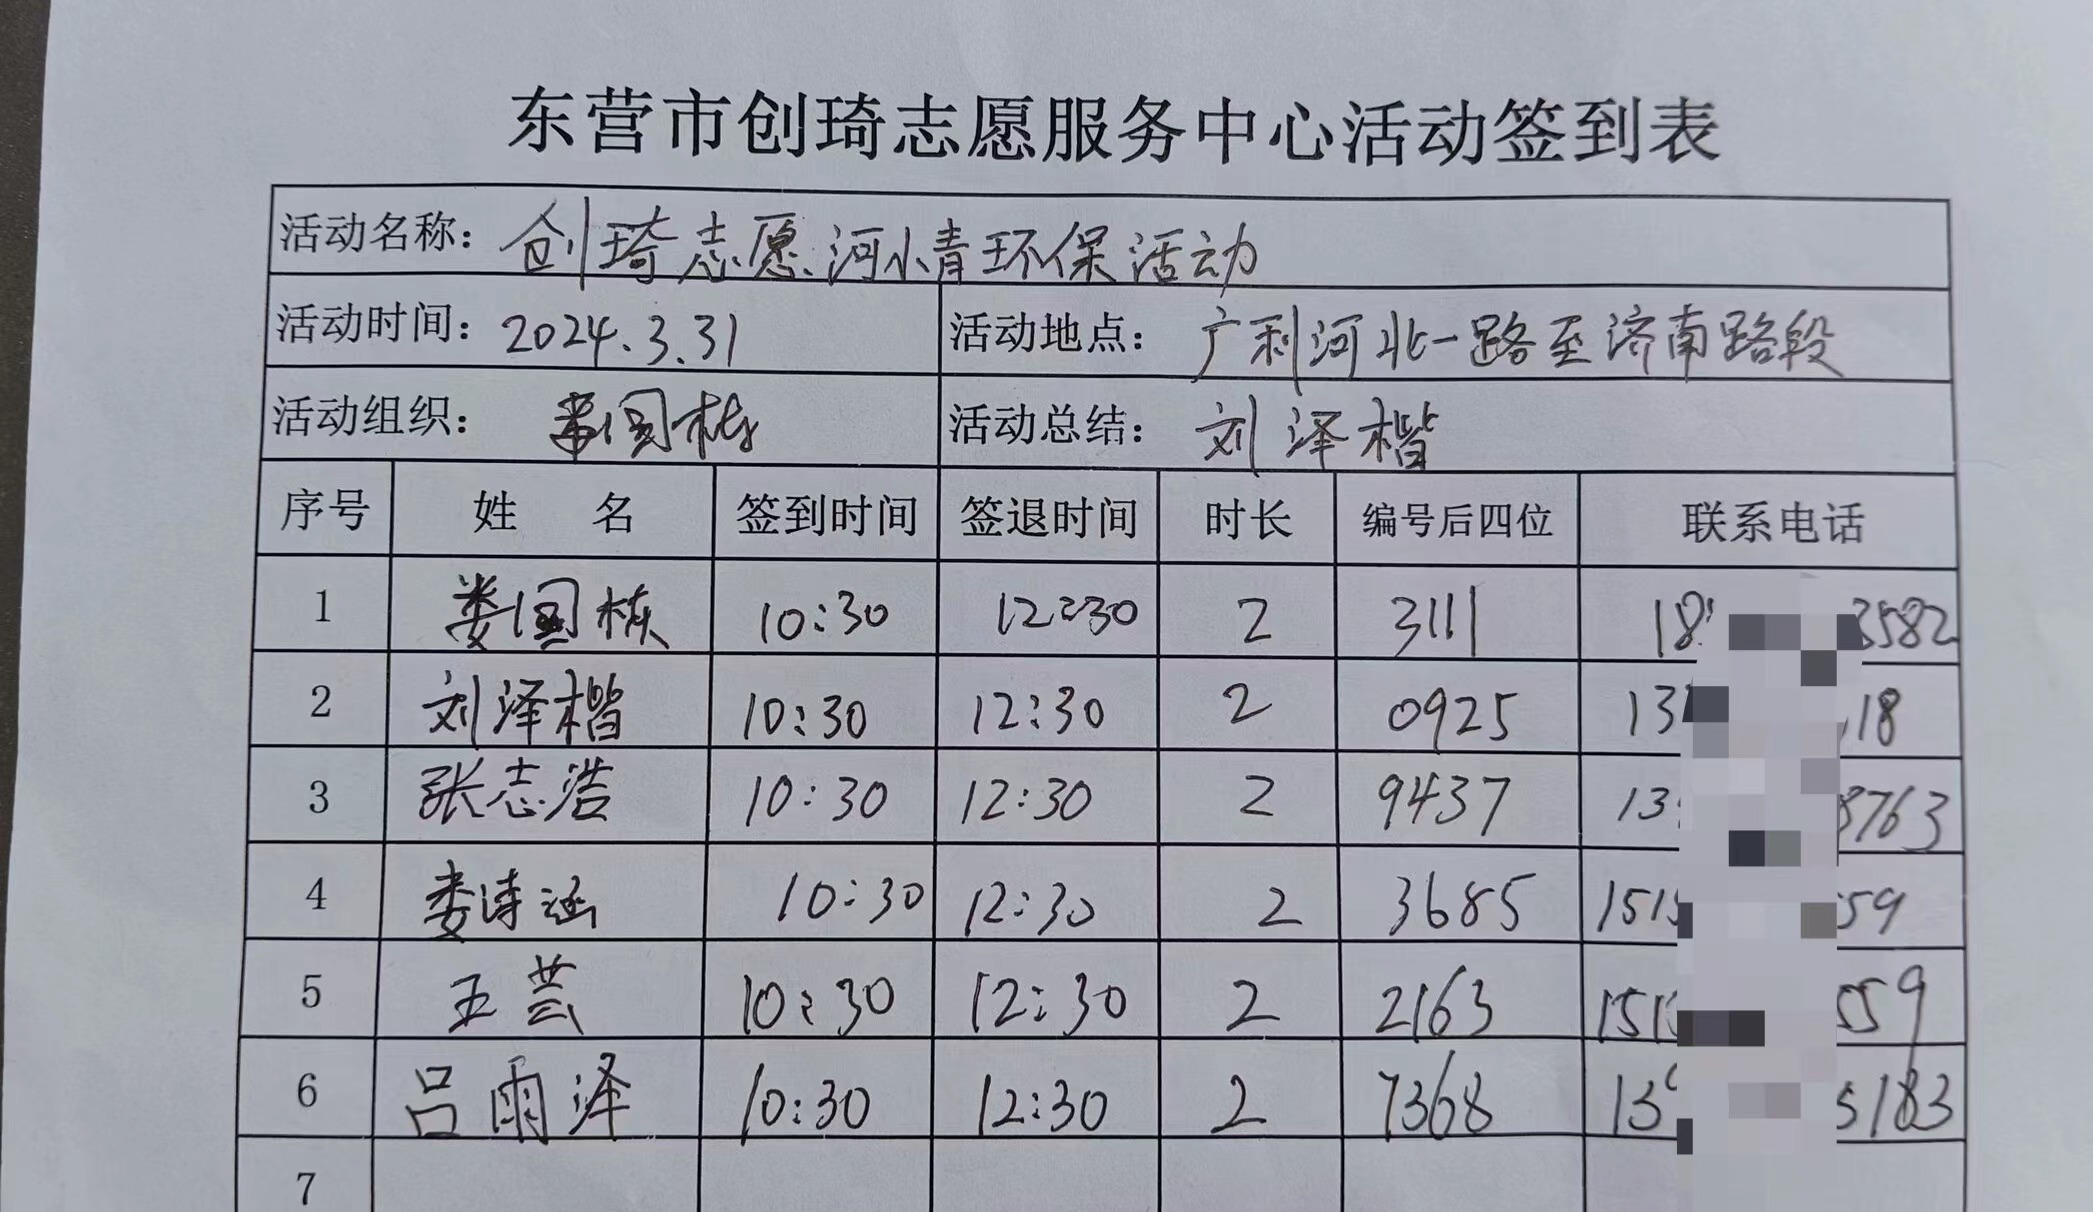 东营市创琦志愿服务中心活动签到表
活动名称：创琦志愿.河小青环保活动
活动时间：2024.3.31 活动地点：广利河北一路至济南路段
活动组织：娄国栋 活动总结：刘泽楷
序号 姓 名 签到时间 签退时间 时长 编号后四位 联系电话
1 娄国栋 10:30 12:30 2 3111 18 3582
2 刘泽楷 10:30 12:30 2 0925 13 18
3 张志浩 10:30 12:30 2 9437 13 8763
4 娄诗涵 10:30 12:30 2 3685 151 59
5 王芸 10:30 12:30 2 2163 151 559
6 吕雨泽 10:30 12:30 2 7368 13 5183
7